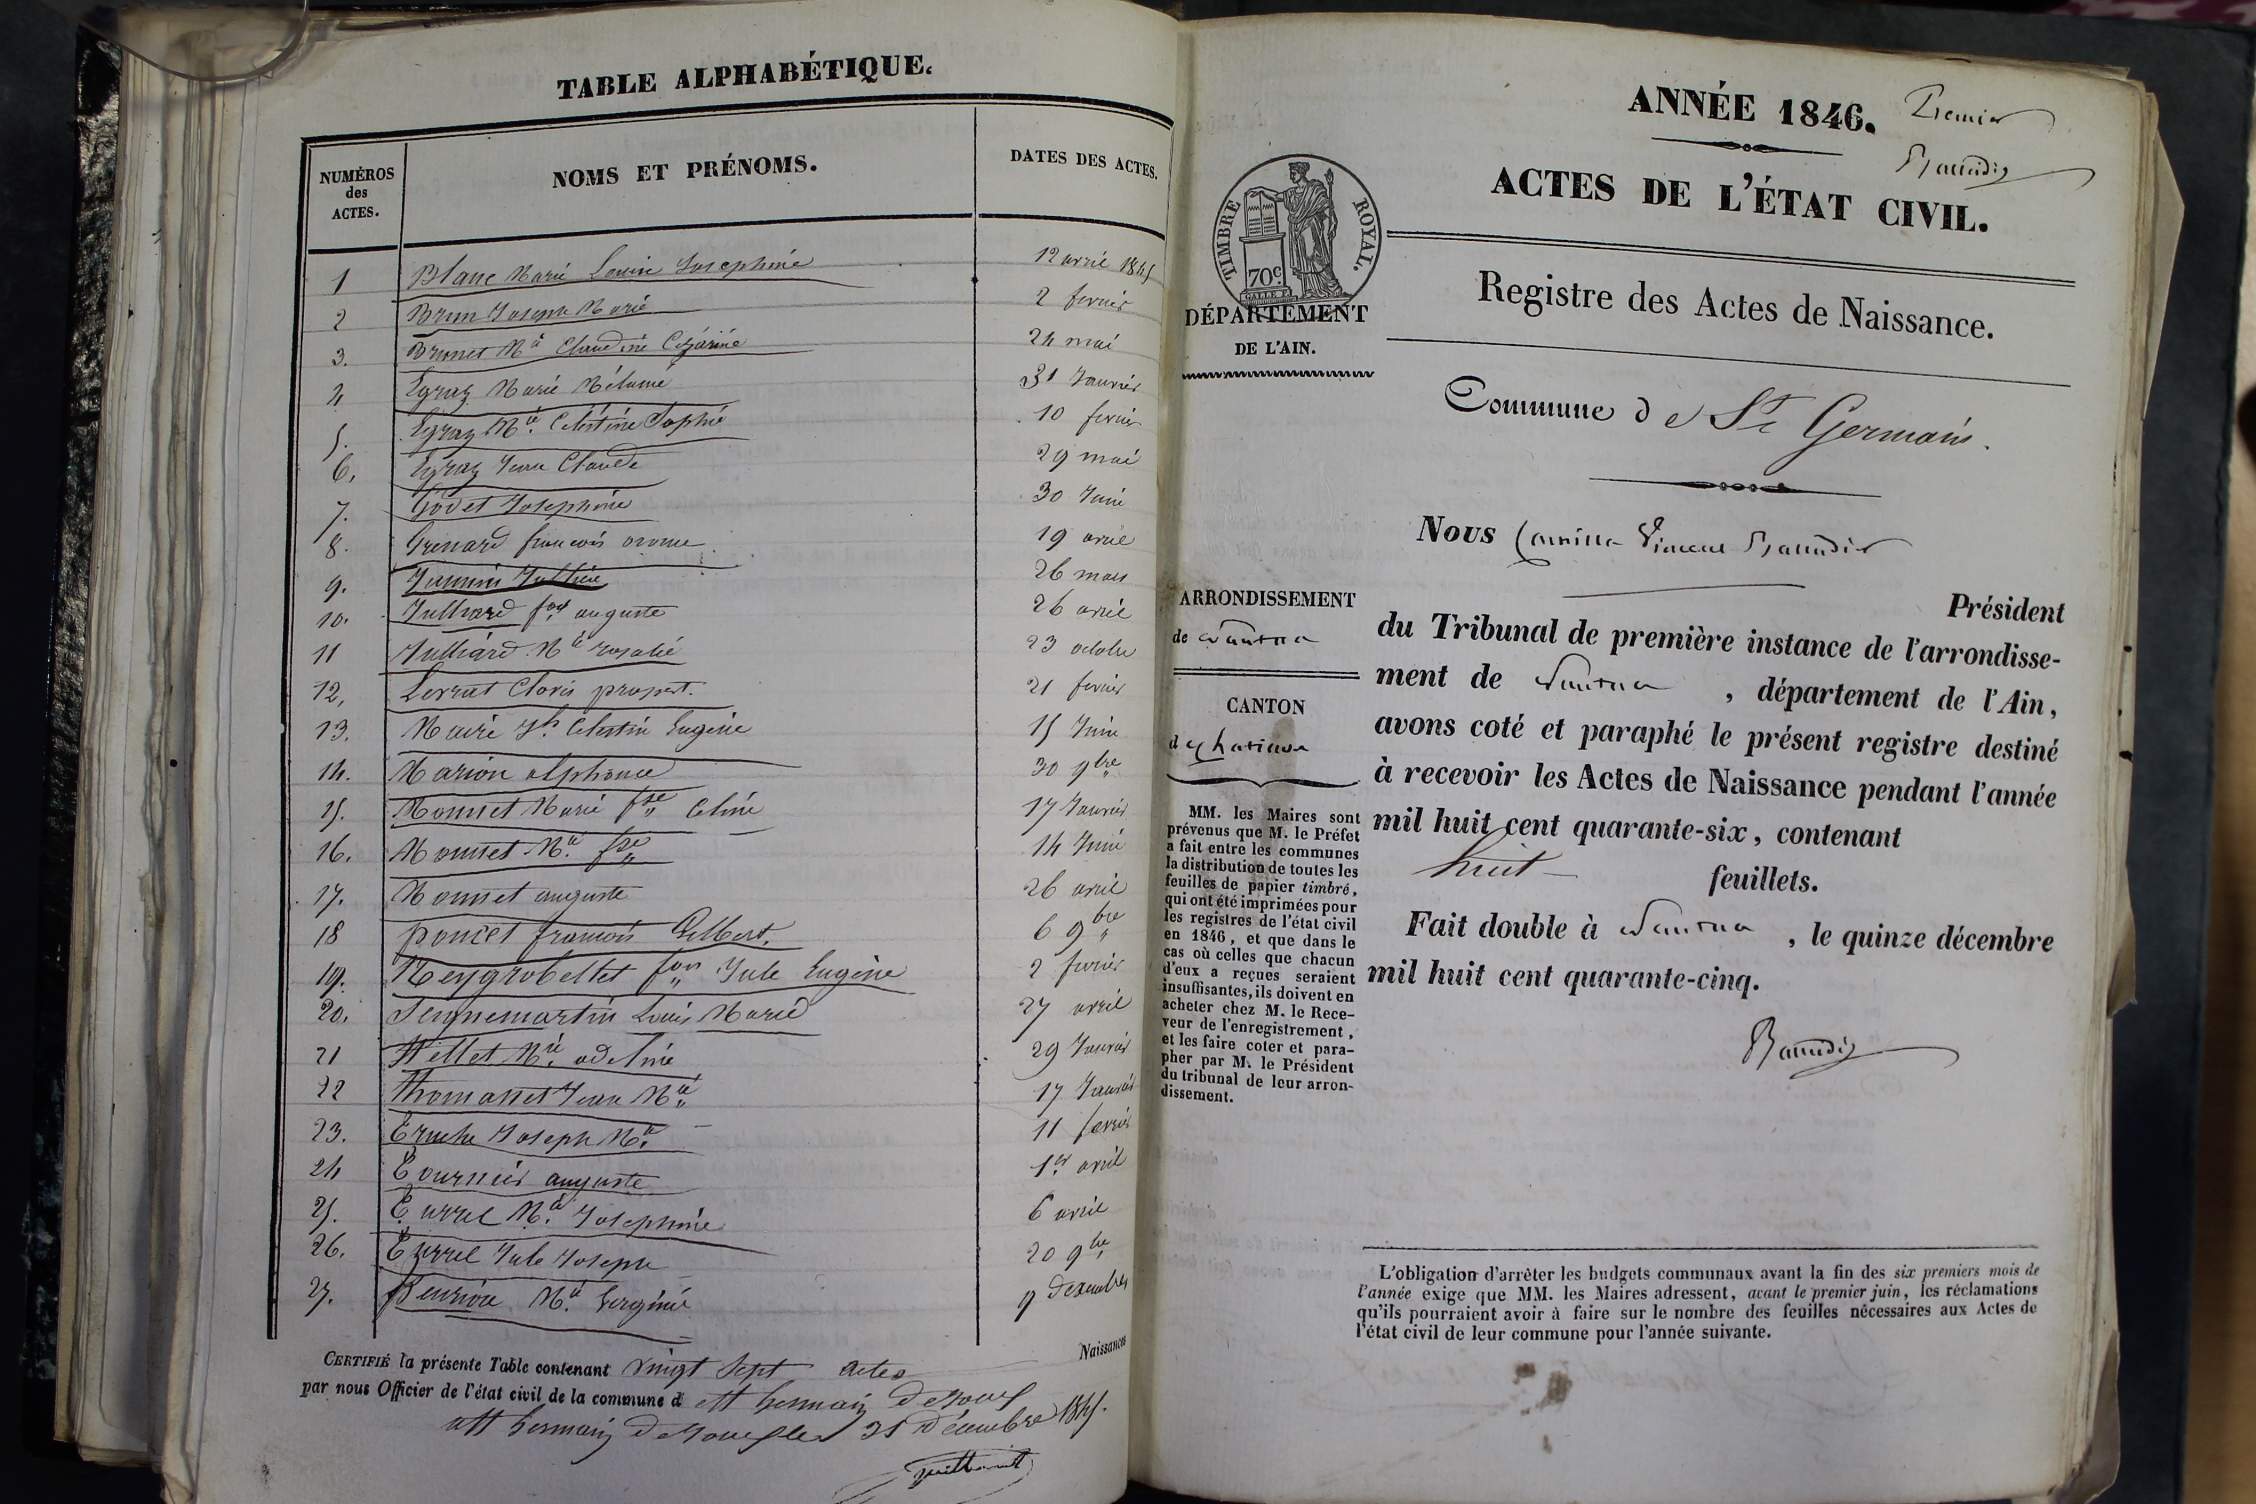 TABLE ALPHABÉTIQUE.
NUMÉROS des ACTES.
NOMS ET PRÉNOMS.
DATES DES ACTES.
1 Blanc Marie Louise Josephine 12 avril 1845
2 Brun Joseph Marie 2 fevrier
3. Brunet Mie Claudine Cezarine 24 mai
4 Egraz Marie Mélanie 31 Janvier
5. Egraz Mie Celestine Sophie 10 fevrier
6. Egraz Jean Claude 29 mai
7. Godet Josephine 30 Juin
8. Grenard francois 19 avril
9. 26 mars
10. Julliard fois auguste 26 avril
11 Julliard Mie rosalie 23 octobre
12, Levrat Clovis prospert. 21 fevrier
13. Maire Jh Celestin Eugene 15 Juin
14. Marion alphonse 30 9bre
15. Monnet Marie fse Celine 17 Janvier
16. Monnet Mie fse 14 Juin
17. Monnet auguste 26 avril
18 poncet francois Gilbert. 6 9bre
19. Reygrobellet fois Jule Eugène 2 fevrier
20. Sennemartin Louis Marie 27 avril
21 Mie adeline 29 Janvier
22 thomasset Jean Mie 17 Janvier
23. Joseph Mie 11 fevrier
24 Tournier auguste 1er avril
25. Turrel Mie Josephine 6 avril
26. Turrel Jule Joseph 20 9bre
27. Mie Virginie 9 Decembre
CERTIFIÉ la présente Table contenant vingt Sept actes Naissances
par nous Officier de l'état civil de la commune d St Germain De Joux
St Germain De Joux le 31 Décembre 1845.
ANNÉE 1846. Premier
Baudin
ACTES DE L'ÉTAT CIVIL.
TIMBRE ROYAL.
70c.
DÉPARTEMENT
DE L'AIN.
Registre des Actes de Naissance.
Commune de St Germain.
Nous Camille Vincent Baudin
Président
du Tribunal de première instance de l'arrondisse-
ment de Nantua, département de l'Ain,
avons coté et paraphé le présent registre destiné
à recevoir les Actes de Naissance pendant l'année
mil huit cent quarante-six, contenant
huit feuillets.
Fait double à Nantua, le quinze décembre
mil huit cent quarante-cinq.
Baudin
ARRONDISSEMENT
de Nantua
CANTON
de Chatillon
MM. les Maires sont
prévenus que M. le Préfet
a fait entre les communes
la distribution de toutes les
feuilles de papier timbré,
qui ont été imprimées pour
les registres de l'état civil
en 1846, et que dans le
cas où celles que chacun
d'eux a reçues seraient
insuffisantes, ils doivent en
acheter chez M. le Rece-
veur de l'enregistrement,
et les faire coter et para-
pher par M. le Président
du tribunal de leur arron-
dissement.
L'obligation d'arrêter les budgets communaux avant la fin des six premiers mois de
l'année exige que MM. les Maires adressent, avant le premier juin, les réclamations
qu'ils pourraient avoir à faire sur le nombre des feuilles nécessaires aux Actes de
l'état civil de leur commune pour l'année suivante.